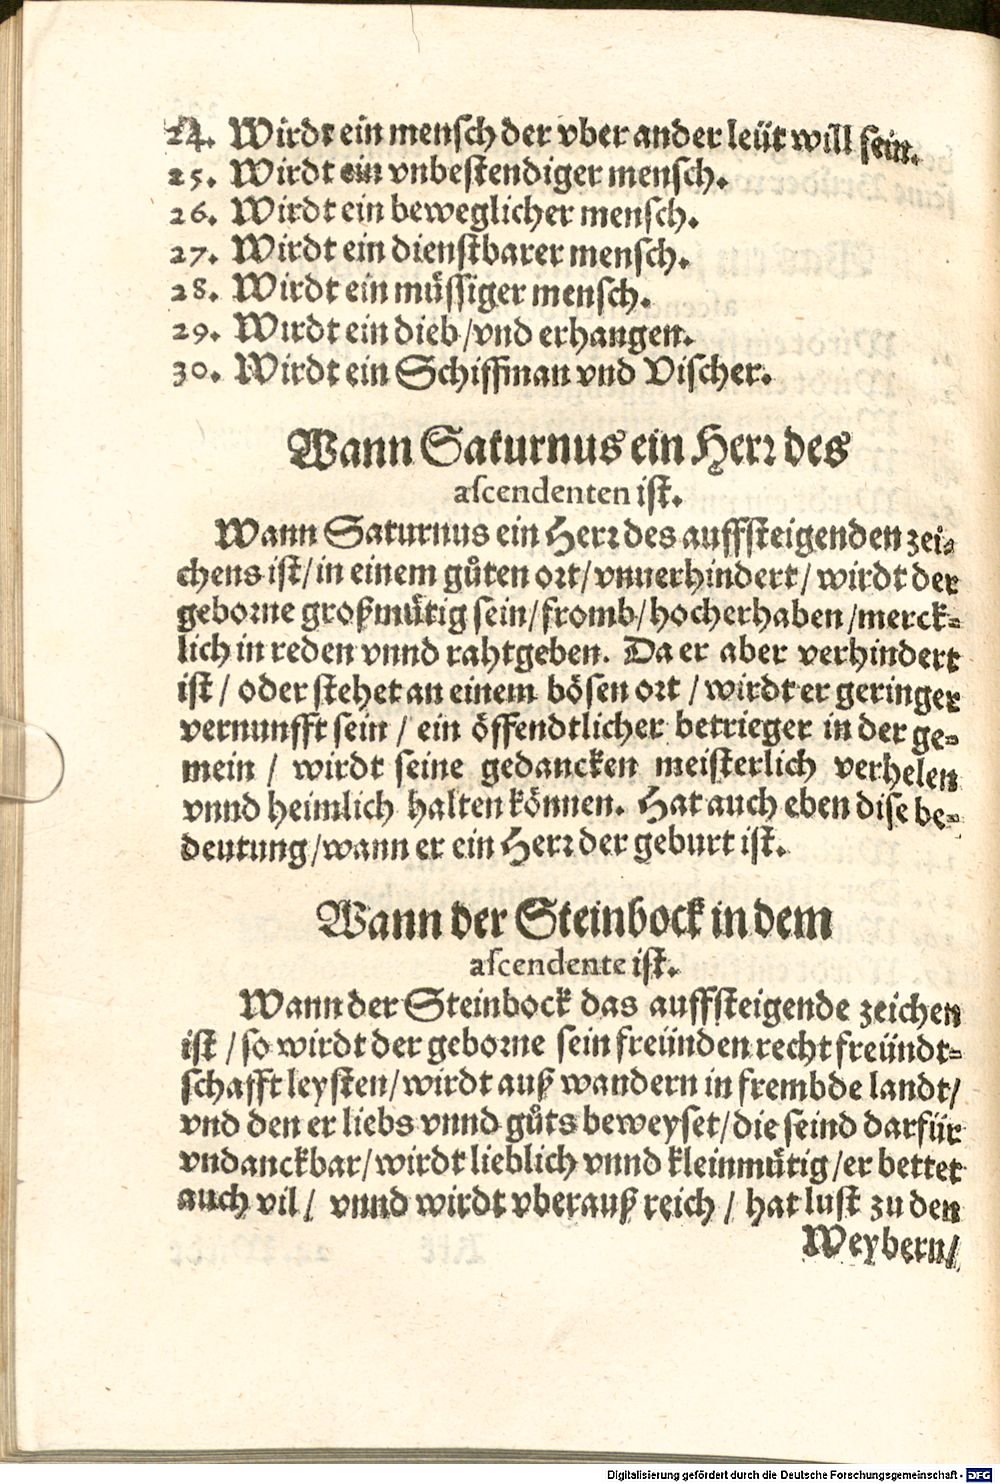 24. Wirdt ein mensch der vber ander leüt will sein.
25. Wirdt ein vnbestendiger mensch.
26. Wirdt ein beweglicher mensch.
27. Wirdt ein dienstbarer mensch.
28. Wirdt ein müssiger mensch.
29. Wirdt ein dieb/vnd erhangen.
30. Wirdt ein Schiffman vnd Vischer.
Wann Saturnus ein Herr des
ascendenten ist.
Wann Saturnus ein Herr des auffsteigenden zei-
chens ist/in einem gůten ort/vnuerhindert/wirdt der
geborne großmütig sein/fromb/hocherhaben/merck-
lich in reden vnnd rahtgeben. Da er aber verhindert
ist/ oder stehet an einem bösen ort / wirdt er geringer
vernunfft sein / ein öffendtlicher betrieger in der ge-
mein / wirdt seine gedancken meisterlich verhelen
vnnd heimlich halten können. Hat auch eben dise be-
deutung/wann er ein Herr der geburt ist.
Wann der Steinbock in dem
ascendente ist.
Wann der Steinbock das auffsteigende zeichen
ist /so wirdt der geborne sein freünden recht freündt-
schafft leysten/wirdt auß wandern in frembde landt/
vnd den er liebs vnnd gůts beweyset/die seind darfür
vndanckbar/wirdt lieblich vnnd kleinmütig/er bettet
auch vil/ vnnd wirdt vberauß reich / hat lust zu den
Weybern/
Digitalisierung gefördert durch die Deutsche Forschungsgemeinschaft - DFG